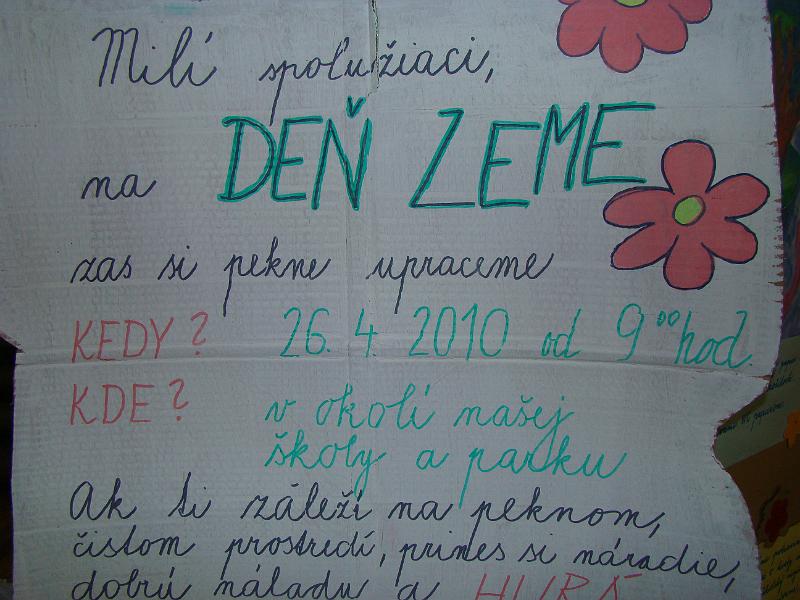 Milí spolužiaci,
na DEŇ ZEME
zas si pekne upraceme
KEDY? 26. 4. 2010 od 9⁰⁰ hod.
KDE? v okolí našej
školy a parku
Ak ti záleží na peknom,
čistom prostredí, prines si náradie,
dobrú náladu a HURÁ